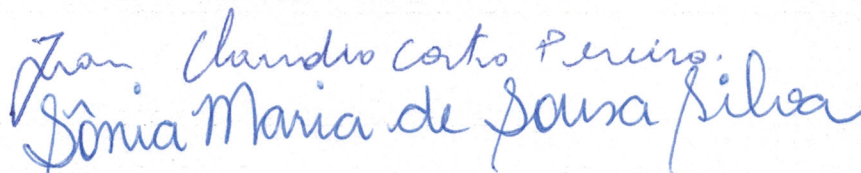 Claudio Pereira.
Sônia Maria de Sousa Silva